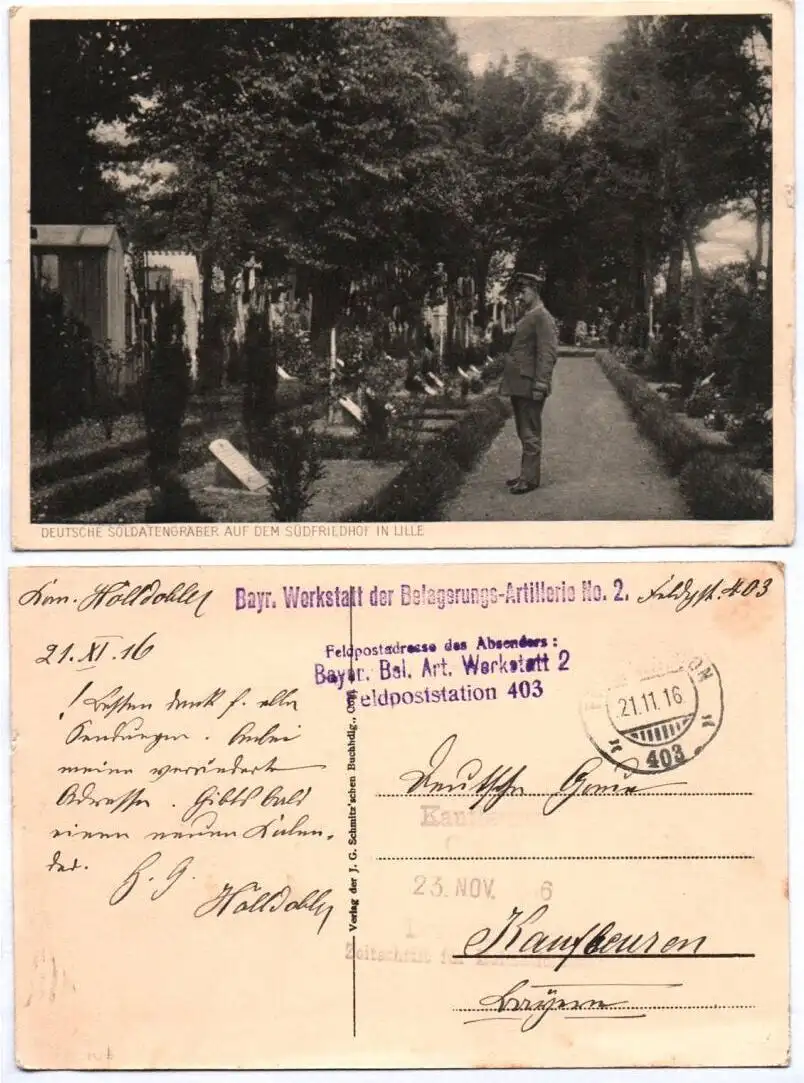 DEUTSCHE SOLDATENGRÄBER AUF DEM SÜDFRIEDHOF IN LILLE
Hölldobler
Bayr. Werkstatt der Belagerungs-Artillerie No. 2.
Feldpst. 403
21. XI. 16
Feldpostadresse des Absenders:
Bayer. Bel. Art. Werkstatt 2
Feldpoststation 403
21.11.16
403
! Besten Dank f. alle
Sendungen. Anbei
meine veränderte
Adresse. Gibts bald
einen neuen Kalen-
der.
H. G.
Hölldobler
Verlag der J. G. Schmitz'schen Buchhdlg., Cöln
Deutsche Gaue
23. NOV. 6
Zeitschrift für
Kaufbeuren
Bayern